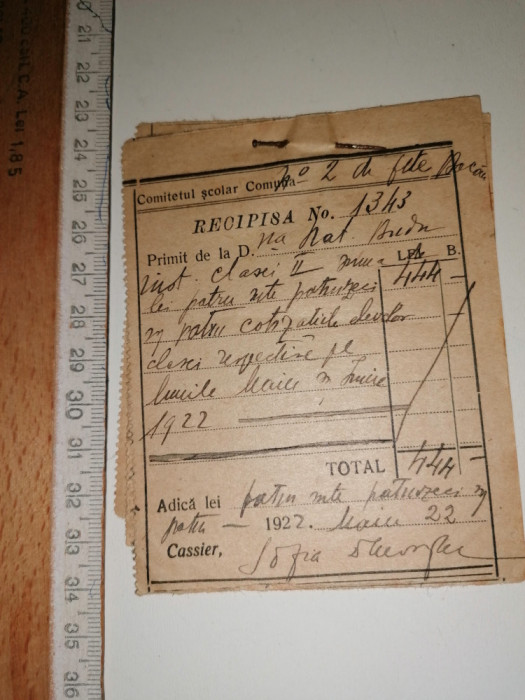 Comitetul școlar Comuna No 2 de fete Bacău
RECIPISA No. 1343
Primit de la D. Na Nat.
inst. clasei II suma
LEI B.
lei patru sute patruzeci 444 —
și patru cotizațiile elevelor
clasei respective pe
lunile Maiu și Iunie
1922
TOTAL 444 —
Adică lei patru sute patruzeci și
patru — 1922. Maiu 22
Cassier, Sofia Gheorghiu
21 22 23 24 25 26 27 28 29 30 31 32 33 34 35 36
Lei 1,85